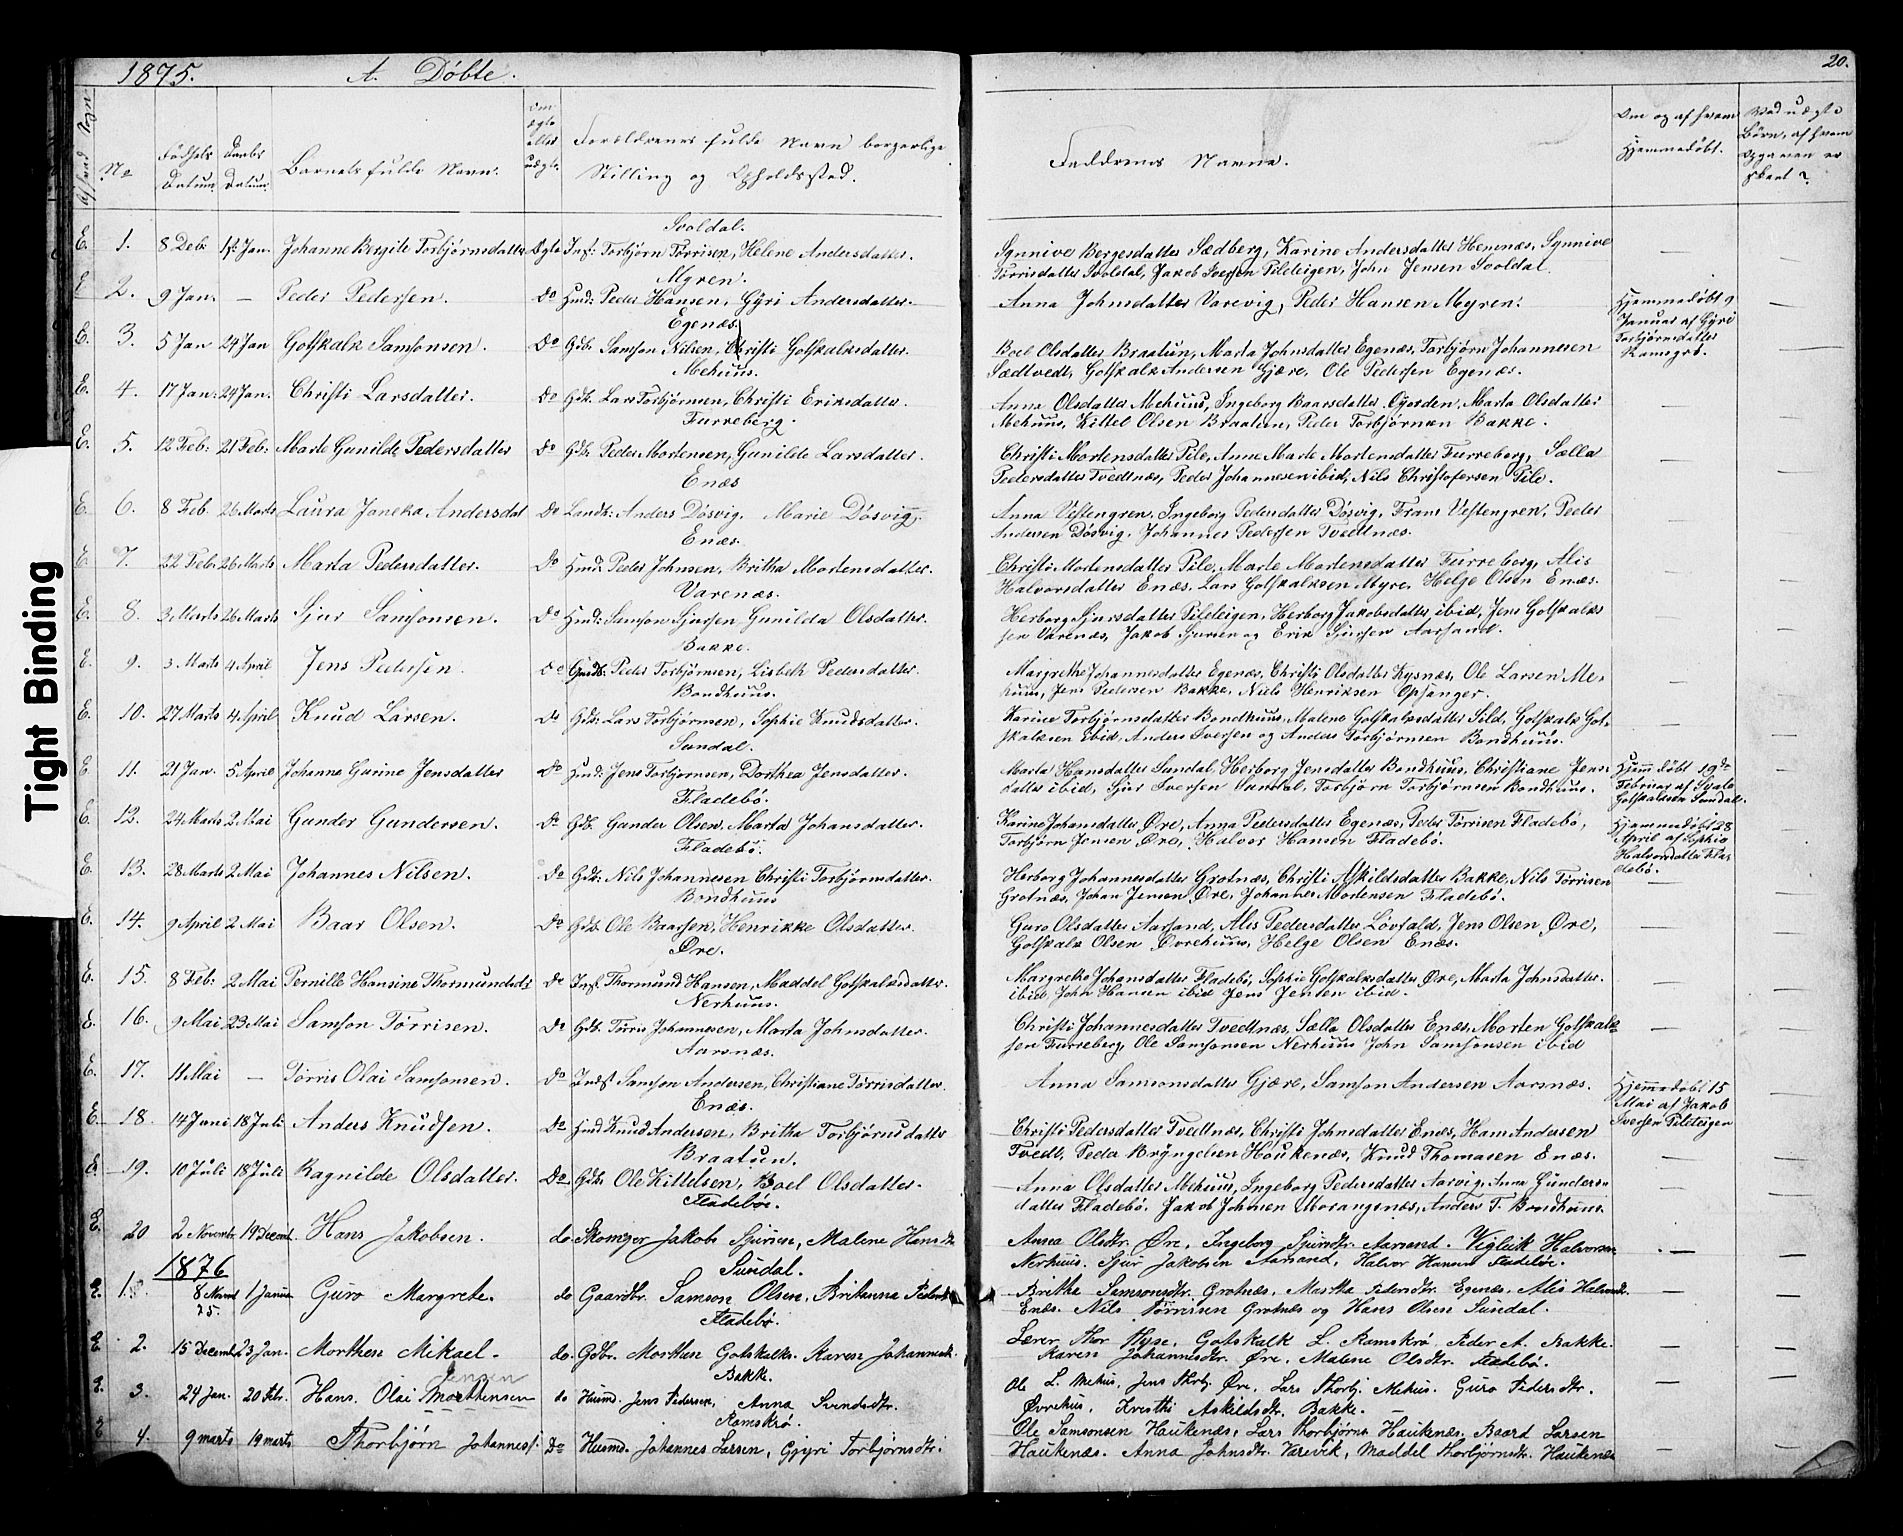 1875. A. Døbte. 20.
No
Fødsels Datum
Daabs Datum
Barnets fulde Navn.
Om ægte eller uægte.
Forældrenes fulde Navn borgerlige
Stilling og Opholdssted.
Faddernes Navne.
Om og af hvem
Hjemmedøbt.
Tight Binding
Svoldal.
E. 1. 8 Deb. 1st Jan. Johanne Bergite Torbjørnsdatter Ægte Inds: Torbjørn Tørrisen, Helene Andersdatter. Synnive Bergesdatter Sædberg, Karine Andersdatter Henenæs, Synnive
Tørrisdatter Svoldal, Jakob Iversen Pileteigen, John Jensen Svoldal.
Myren.
E 2. 9 Jan. — Peder Pedersen. Do Hmd: Peder Hansen, Gyri Andersdatter. Anna Johnsdatter Varevig, Peder Hansen Myren. Hjemmedøbt 9
Januar af Gyri
Torbjørnsdatter
Ramsgrø.
Egenæs.
E. 3. 5 Jan 24 Jan Gotskalk Samsonsen. Do Gdb. Samson Nilsen, Christi Gotskalksdatter. Boel Olsdatter Braatun, Marta Johnsdatter Egenæs, Torbjørn Johannesen
Sædtvedt, Gotskalk Andersen Gjære, Ole Pedersen Egenæs.
Mehuus.
E. 4. 17 Jan. 24 Jan. Christi Larsdatter. Do Gdb. Lars Torbjørnsen, Christi Eriksdatter. Anna Olsdatter Mehuus, Ingeborg Baarsdatter Gjorden, Marta Olsdatter
Mehuus, Kittel Olsen Braatun, Peder Torbjørnsen Bakke.
Furreberg.
E. 5. 12 Feb: 21 Feb: Marte Gunilde Pedersdatter Do Gdb. Peder Mortensen, Gunilde Larsdatter. Christi Mortensdatter Pile, Anne Marte Mortensdatter Furreberg, Sælla
Pedersdatter Tvedtnæs, Peder Johannesen ibid, Nils Christofersen Pile.
Enæs
E. 6. 8 Feb. 26 Marts Laura Janeka Andersdat Do Landh: Anders Døsvig. Marie Døsvig. Anna Vestengren, Ingeborg Pedersdatter Døsvig, Frans Vestengren, Peder
Andersen Døsvig, Johannes Pedersen Tvedtnæs.
Enæs.
E 7. 22 Feb. 26 Marts Marta Pedersdatter. Do Hmd: Peder Johnsen, Britha Mortensdatter. Christi Mortensdatter Pile, Marte Mortensdatter Furreberg, Alis
Halvorsdatter Enæs, Lars Gotskalksen Myre, Helge Olsen Enæs.
Varenæs.
E. 8. 3 Marts 26 Marts Sjur Samsonsen. Do Hmd: Samson Sjursen Gunilda Olsdatter. Herborg Sjursdatter Pileteigen, Herborg Jakobsdatter ibid, Jens Gotskalk
sen Varenæs, Jakob Sjursen og Erik Sjursen Aarsand.
Bakke.
E. 9. 3 Marts 4 April Jens Pedersen. Do Gmdb. Peder Torbjørnsen, Lisbeth Pedersdatter. Margrethe Johannesdatter Egenæs, Christi Olsdatter Kysnæs, Ole Larsen Me-
huus, Jens Pedersen Bakke, Niels Henriksen Opsanger.
Bondhuus.
E. 10. 27 Marts 4 April Knud Larsen. Do Gdb. Lars Torbjørnsen, Sophie Knudsdatter. Karine Torbjørnsdatter Bondhuus, Malene Gotskalksdatter Sild, Gotskalk Got-
skalksen ibid, Anders Iversen og Anders Torbjørnsen Bondhuus.
Sundal.
E 11. 21 Jan. 5 April Johanne Gurine Jensdatter Do Hmd: Jens Torbjørnsen, Dorthea Jensdatter. Marta Hansdatter Sundal, Herborg Jensdatter Bondhuus, Christiane Jens-
datter ibid, Sjur Iversen Sundal, Torbjørn Torbjørnsen Bondhuus. Hjemmedøbt 19de
Februar af
Gotskalksen Sundal.
Fladebø.
E. 12. 24 Marts 2 Mai Gunder Gundersen. Do Gdb. Gunder Olsen, Marta Johansdatter. Karine Johansdatter Øre, Anna Pedersdatter Egenæs, Peder Tørrisen Fladebø,
Torbjørn Jensen Øre, Halvor Hansen Fladebø. Hjemmedøbt 28
April af Sophia
Halvorsdatter Fla-
debø.
Fladebø.
E. 13. 28 Marts 2 Mai Johannes Nilsen. Do Gdb: Nils Johannesen Christi Torbjørnsdatter. Herborg Johannesdatter Grotnæs, Christi Askildsdatter Bakke, Nils Tørrisen
Grotnæs, Johan Jensen Øre, Johannes Mortensen Fladebø.
Bondhuus
E. 14. 9 April 2 Mai Baar Olsen. Do Gdb. Ole Baarsen, Henrikke Olsdatter. Guro Olsdatter Aarsand, Alis Pedersdatter Løvfald, Jens Olsen Øre,
Gotskalk Olsen Øvrehuus, Helge Olsen Enæs.
Øre.
E. 15. 8 Feb: 2 Mai Pernille Hansine Thormundsdt Do Inds. Thormund Hansen, Maddel Gotskalksdatter. Margrethe Johansdatter Fladebø, Sophie Gotskalksdatter Øre, Marta Johnsdatter.
ibid, John Hansen ibid Jens Jensen ibid.
Nerhuus.
E. 16. 9 Mai 23 Mai Samson Tørrisen. Do Gdb. Tørris Johannesen, Marta Johnsdatter. Christi Johannesdatter Tvedtnæs, Sælla Olsdatter Enæs, Morten Gotskalk-
sen Furreberg, Ole Samsonsen Nerhuus John Samsonsen ibid
Aarsnæs.
E. 17. 11 Mai — Tørris Olai Samsonsen. Do Indst Samson Andersen, Christiane Tørrisdatter. Anna Samsonsdatter Gjære, Samson Andersen Aarsnæs. Hjemmedøbt 15
Mai af Jakob
Iversen Pileteigen
Enæs.
E 18. 14 Juni 18 Juli Anders Knudsen. Do Hmd Knud Andersen, Britha Torbjørnsdatter Christi Pedersdatter Tvedtnæs, Christi Johnsdatter Enæs, Hans Andersen
Tvedt, Peder Brÿngelsen Haukenæs, Knud Thomasen Enæs.
Braatun.
E. 19. 10 Juli 18 Juli Ragnilde Olsdatter. Do. Gdb. Ole Kittelsen, Boel Olsdatter. Anna Olsdatter Mehuus, Ingeborg Pedersdatter Aarvig, Anna Gunders-
datter Fladebø, Jakob Johnsen Morangsnæs, Anders T. Bondhuus.
Fladebø.
E. 20 2 Novemb. 19 Decemb. Hans Jakobsen. do Skomger Jakob Sjursen, Malene Hansdt Anna Olsdtr. Øre, Ingeborg Sjursdtr. Aarsand. Vigleik Halvorsen
Nerhuus. Sjur Jakobsen Aarsand, Halvor Hansen Fladebø.
1876
Sundal.
E. 1. 8 Novmb 75. 1 Januar Guro Margrete. do Gaardbr. Samson Olsen, Britanna Pedersdt Brithe Samsonsdtr. Grotnæs, Martha Pedersdtr. Egenæs, Alis Halvorsdt.
Enæs. Nils Tørrisen Grotnæs og Hans Olsen Sundal.
Fladebø.
E 2. 15 Decembr 23 Jan. Morthen Mikael. do. Gdbr. Morthen Gotskalks. Karen Johannesdt. Lærer Thor Hyse, Gotskalk L. Ramskrø Peder A. Bakke.
Karen Johannesdtr. Øre, Malene Olsdtr. Fladebø.
Bakke.
Jensen
E. 3. 24 Jan. 20 Febr. Hans Olai Morthensen do Husmd. Jens Pedersen, Anna Svendsdtr. Ole L. Mehus, Jens Thorbj. Øre, Lars Thorbj. Mehus. Guro Pedersdtr.
Øvrehus, Kristhi Askildsdtr. Bakke.
Ramskrø.
E 4. 9 marts 19 marts Thorbjørn Johanness. Do Husmd. Johannes Larsen, Gjyri Torbjørnsdtr. Ole Samsonsen Haukenæs, Lars Thorbjørns Haukenæs. Baard Larsen
Haukenæs. Anna Johnsdtr. Varevik, Maddel Thorbjørnsdtr. Haukenæs